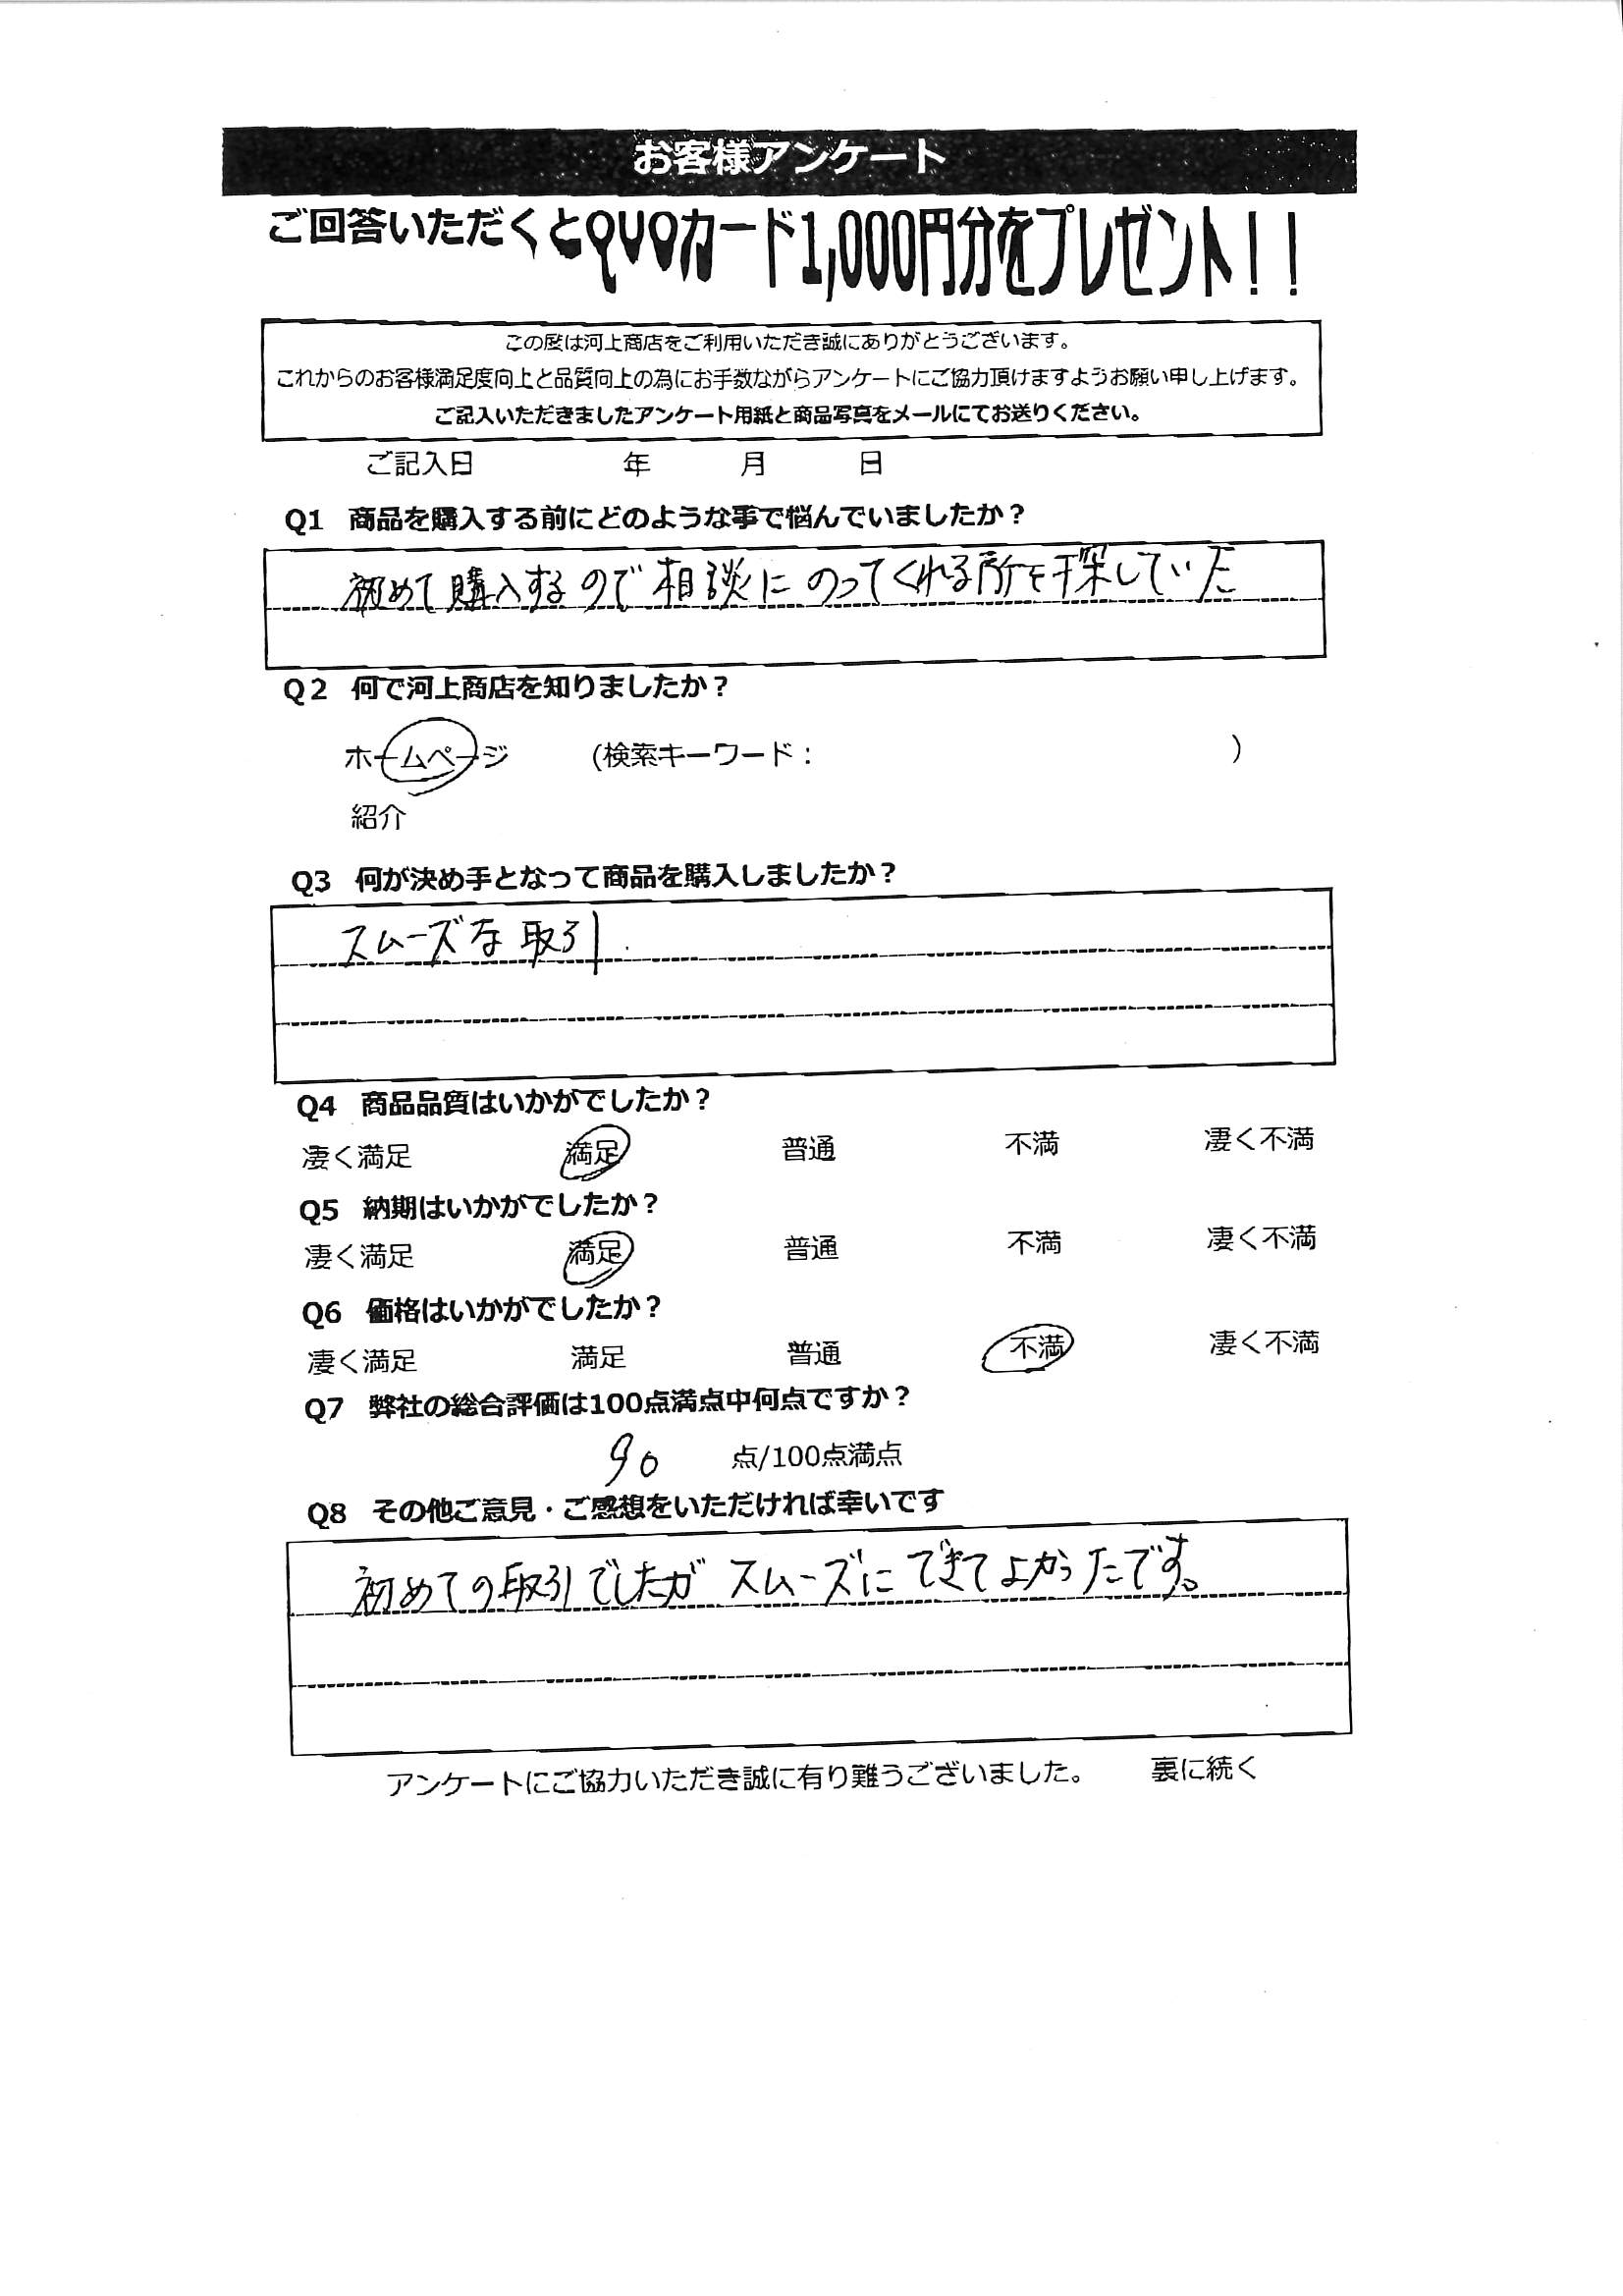 お客様アンケート
ご回答いただくとQUOカード1,000円分をプレゼント！！
この度は河上商店をご利用いただき誠にありがとうございます。
これからのお客様満足度向上と品質向上の為にお手数ながらアンケートにご協力頂けますようお願い申し上げます。
ご記入いただきましたアンケート用紙と商品写真をメールにてお送りください。
ご記入日 年 月 日
Q1 商品を購入する前にどのような事で悩んでいましたか？
初めて購入するので相談にのってくれる所を探していた
Q2 何で河上商店を知りましたか？
ホームページ (検索キーワード： )
紹介
Q3 何が決め手となって商品を購入しましたか？
スムーズな取引
Q4 商品品質はいかがでしたか？
凄く満足 満足 普通 不満 凄く不満
Q5 納期はいかがでしたか？
凄く満足 満足 普通 不満 凄く不満
Q6 価格はいかがでしたか？
凄く満足 満足 普通 不満 凄く不満
Q7 弊社の総合評価は100点満点中何点ですか？
90 点/100点満点
Q8 その他ご意見・ご感想をいただければ幸いです
初めての取引でしたがスムーズにできてよかったです。
アンケートにご協力いただき誠に有り難うございました。 裏に続く